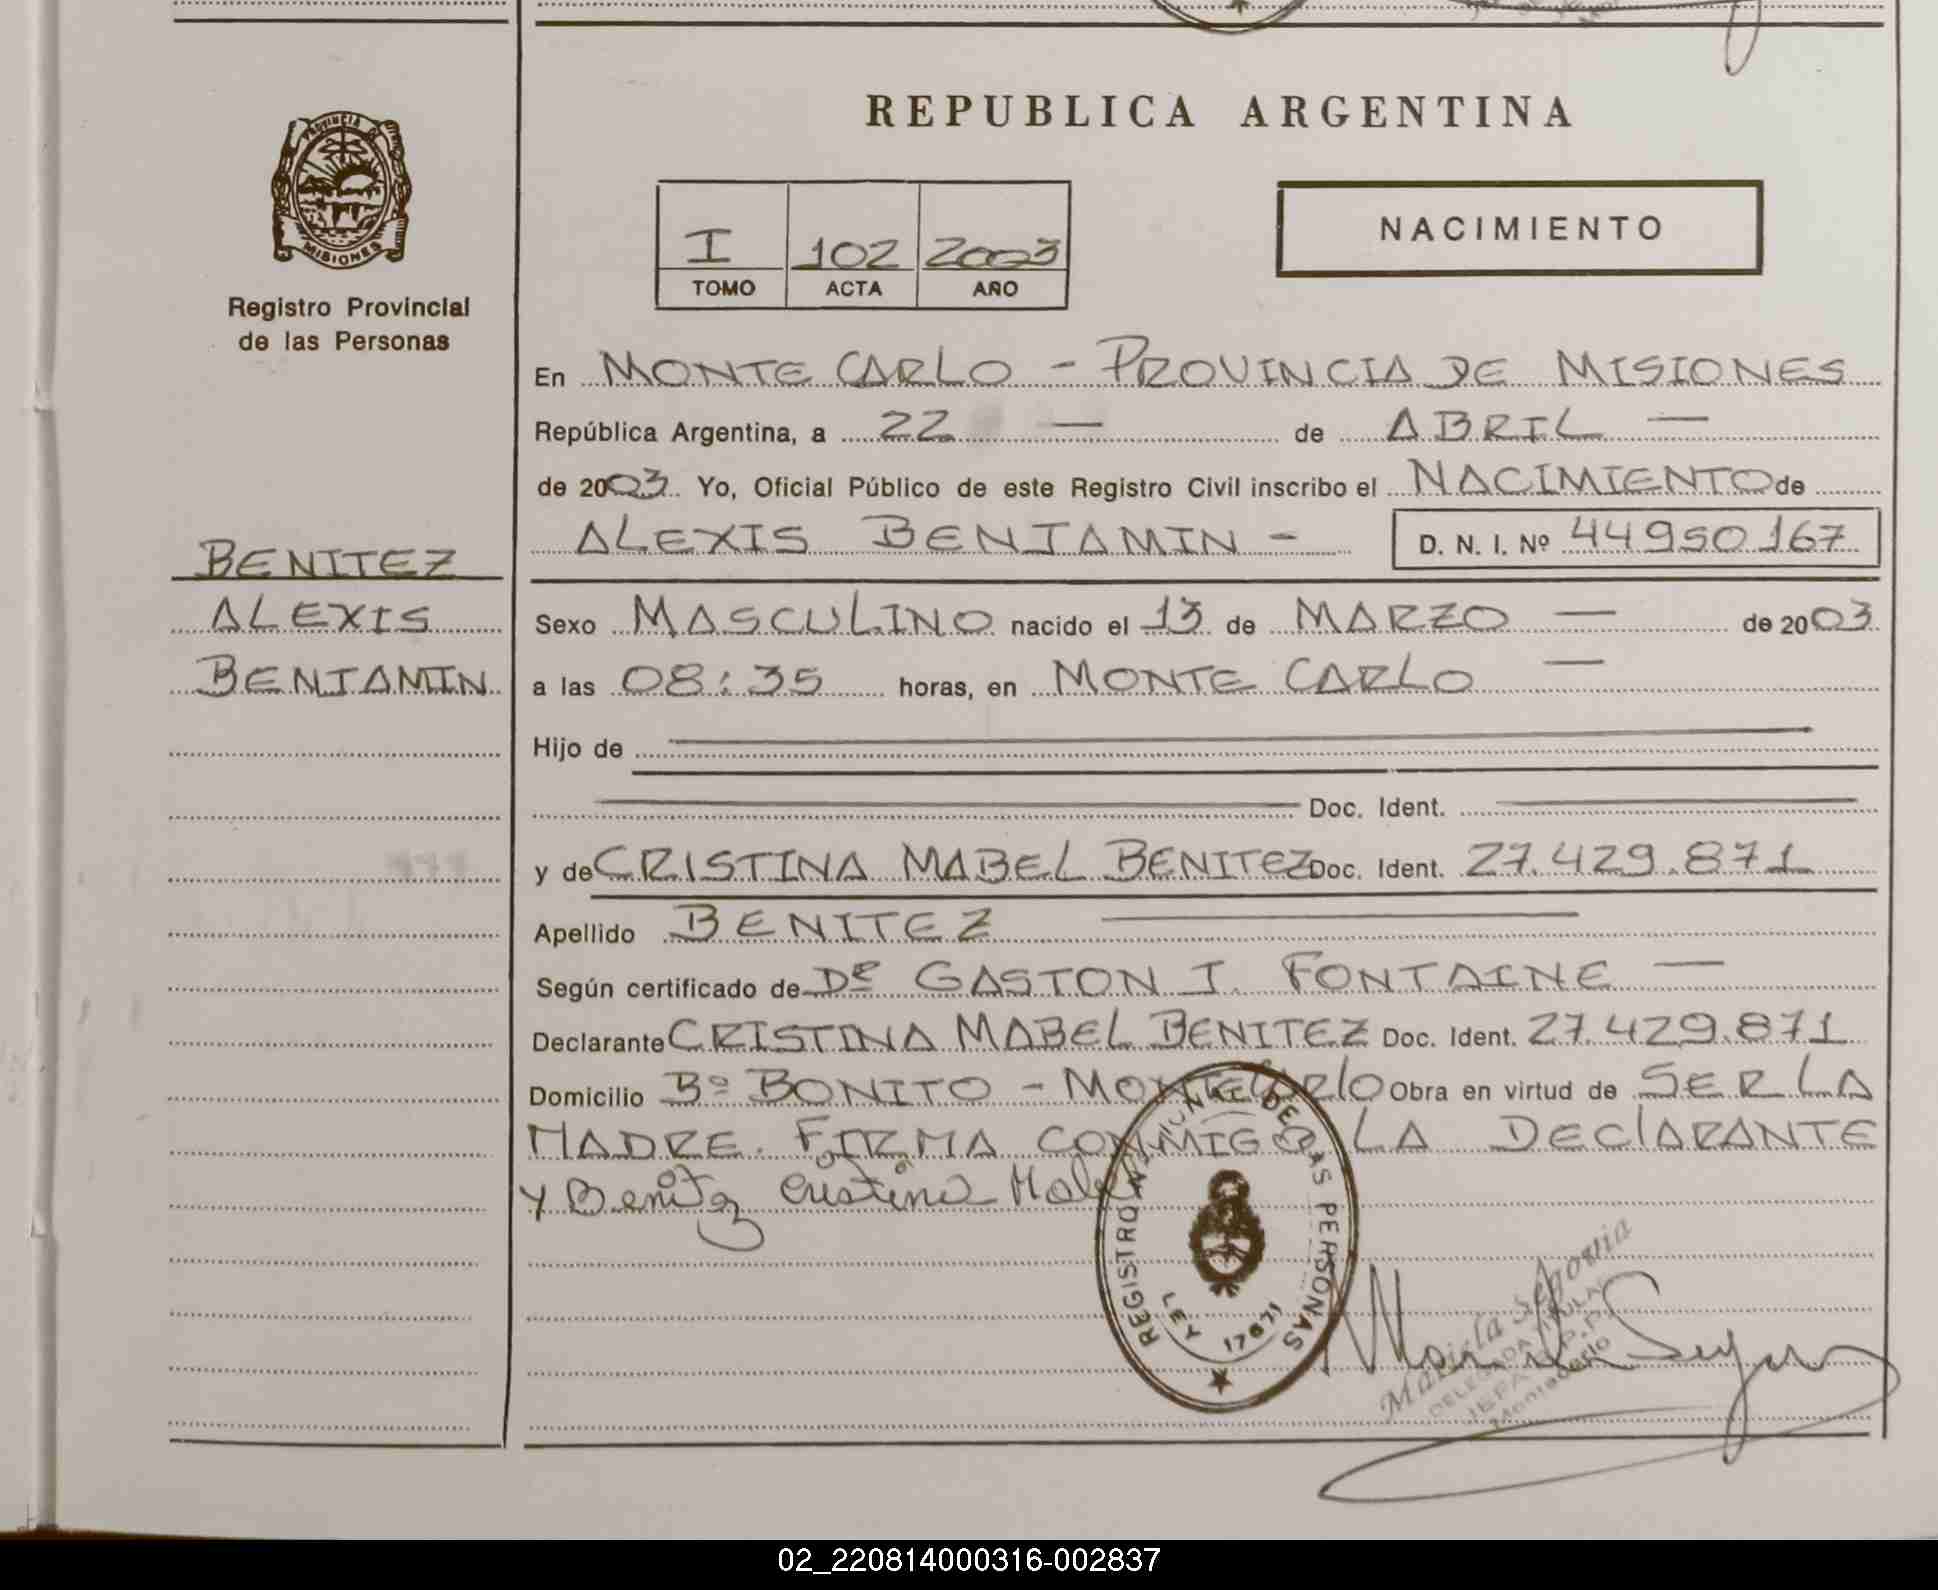 REPUBLICA ARGENTINA
PROVINCIA DE
MISIONES
Registro Provincial
de las Personas
I 102 2003
TOMO ACTA AÑO
NACIMIENTO
En MONTE CARLO - PROVINCIA DE MISIONES
República Argentina, a 22 — de ABRIL —
de 2003 Yo, Oficial Público de este Registro Civil inscribo el NACIMIENTO de
ALEXIS BENJAMIN - D. N. I. Nº 44950167
BENITEZ
ALEXIS
BENJAMIN
Sexo MASCULINO nacido el 13 de MARZO — de 2003
a las 08:35 horas, en MONTE CARLO —
Hijo de
Doc. Ident.
y de CRISTINA MABEL BENITEZ Doc. Ident. 27.429.871
Apellido BENITEZ
Según certificado de Dr GASTON J. FONTAINE —
Declarante CRISTINA MABEL BENITEZ Doc. Ident. 27.429.871
Domicilio Bº BONITO - MONTECARLO Obra en virtud de SER LA
MADRE. FIRMA CONMIGO LA DECLARANTE
Y Benitez Cristina Mabel
REGISTRO NACIONAL DE LAS PERSONAS
LEY 17671
Mariela Segovia
DELEGADA TITULAR
Montecarlo
02_220814000316-002837